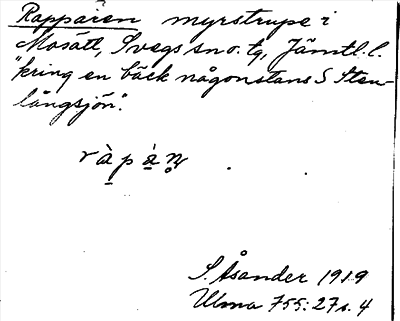 Rapparen myrstrupe i
Mosätt, Svegs sn o. tg, Jämtl. l.
"kring en bäck någonstans S Sten-
långsjön".
ràpáṇ
S. Åsander 1919
Ulma 755:27 s. 4